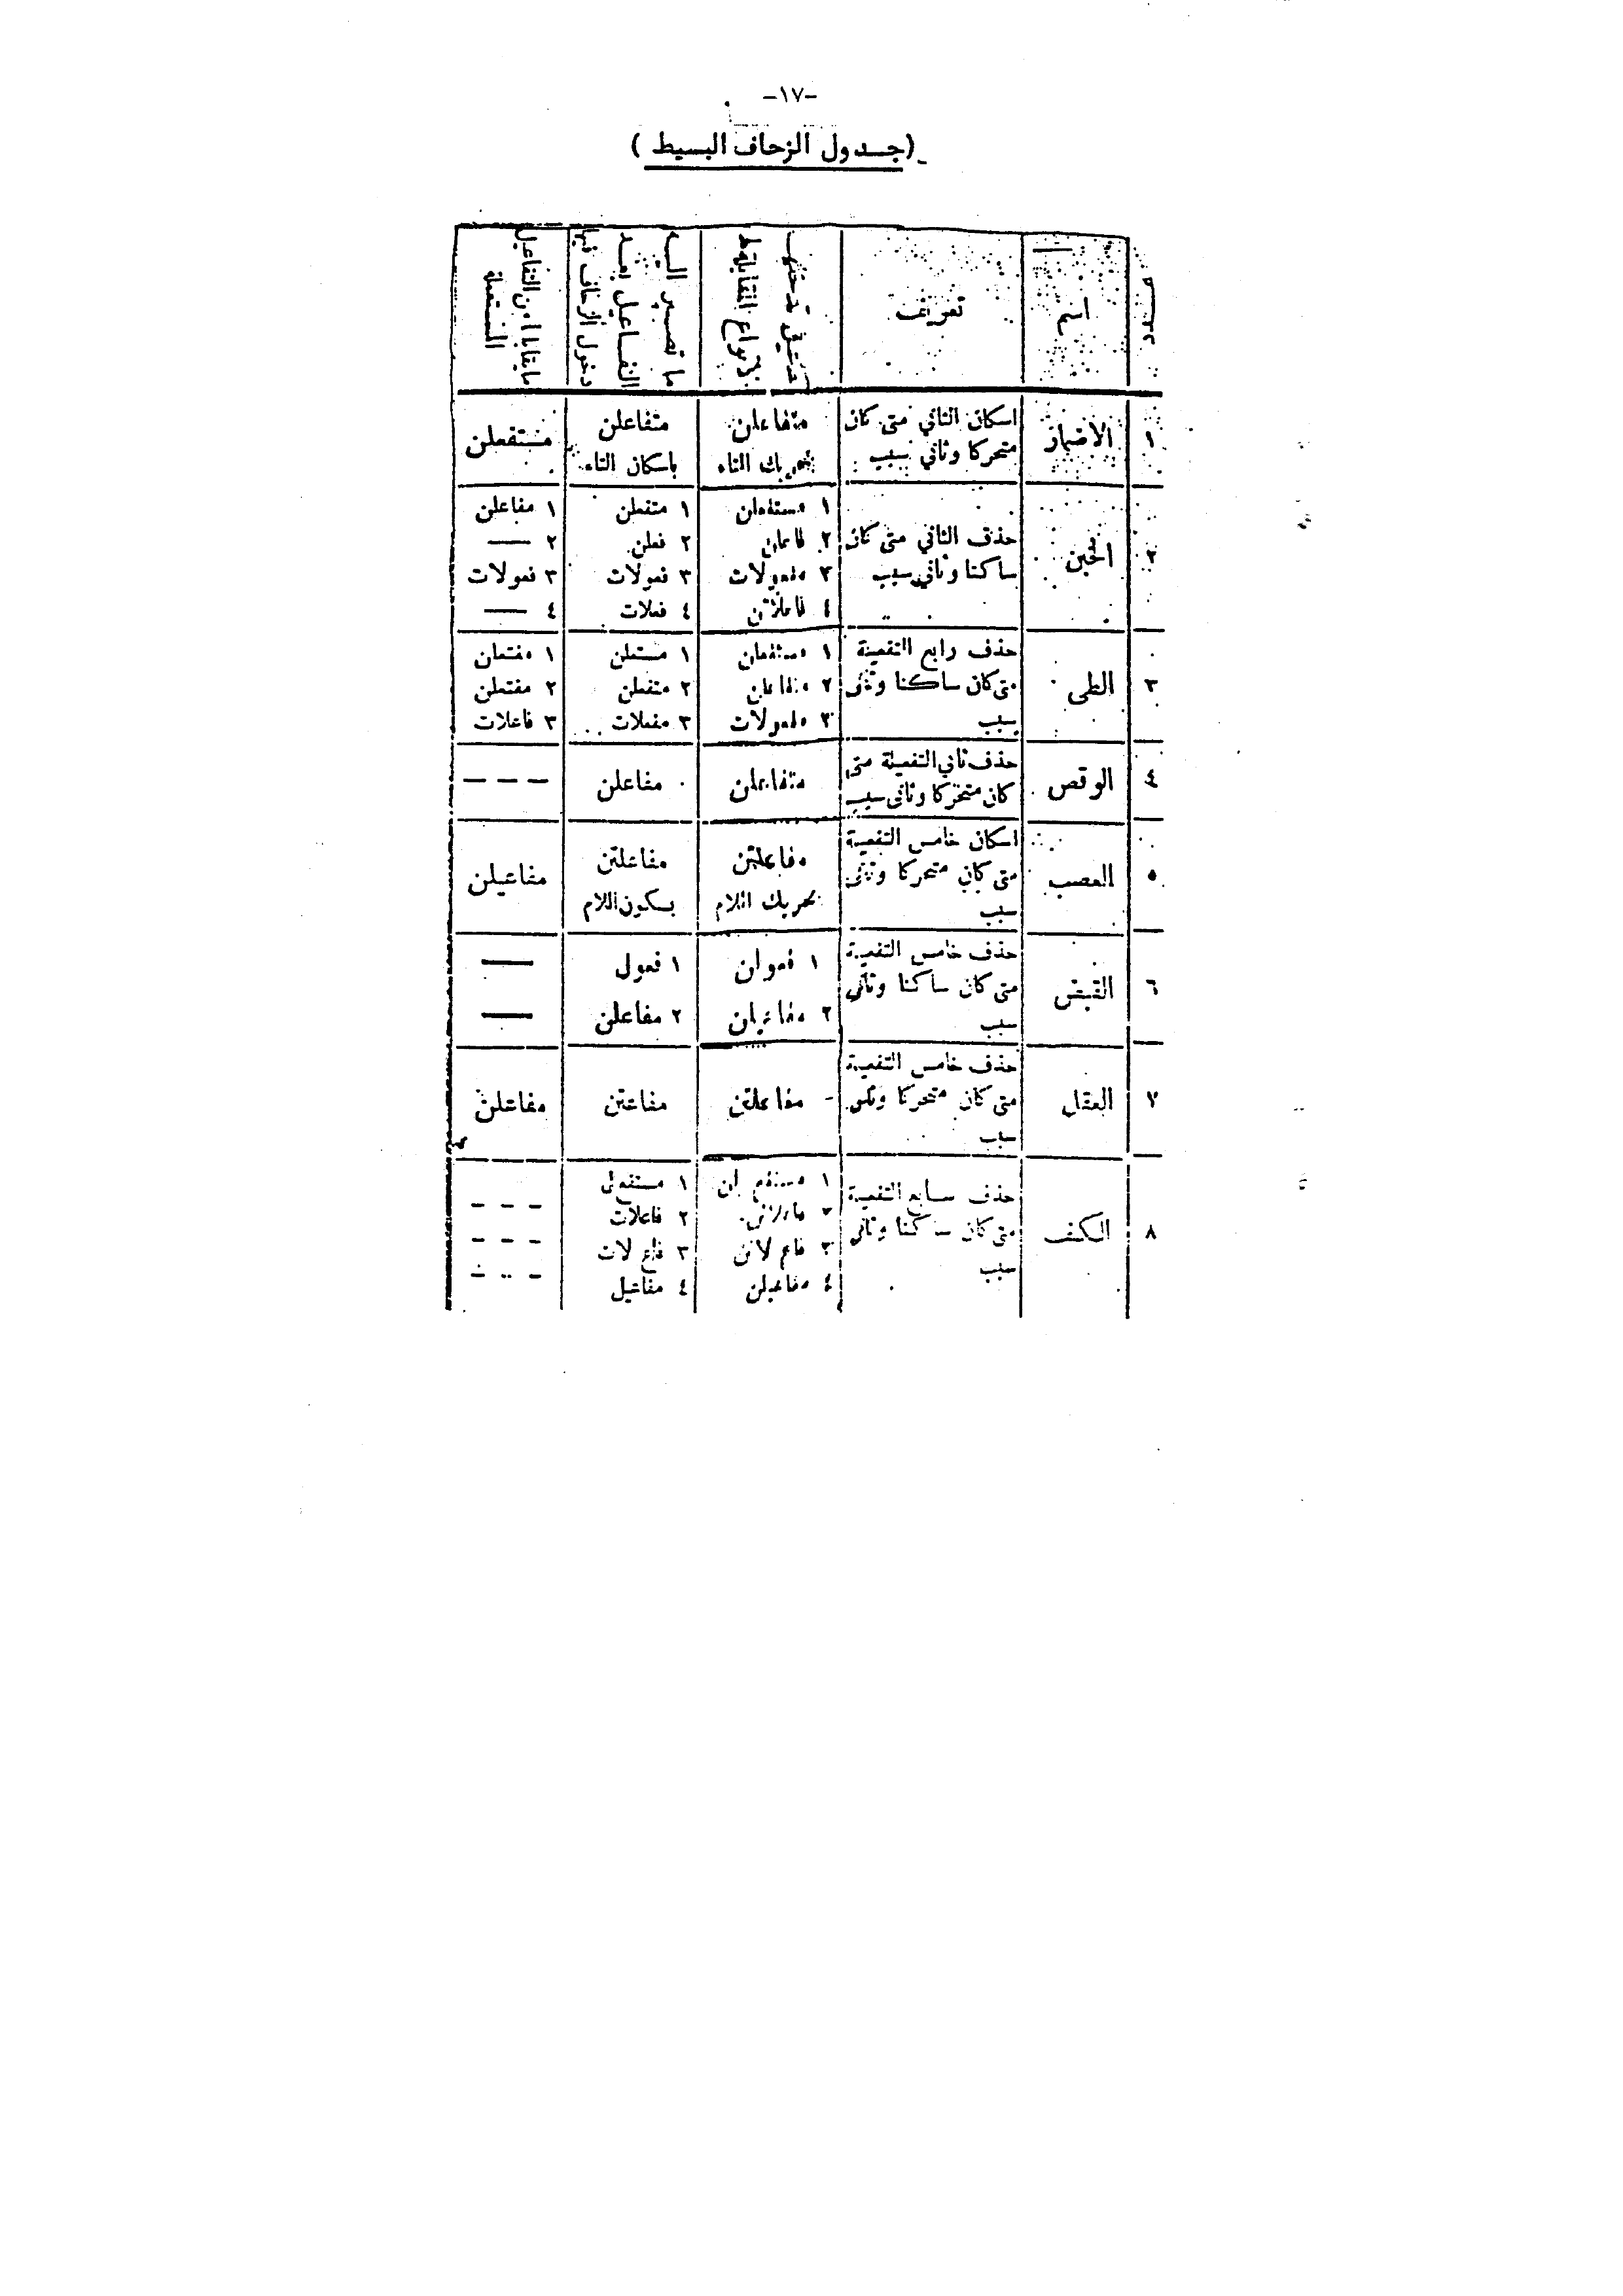 -١٧-
(جدول الزحاف البسيط)
عدد
اسم
تعريف
تدخلها الأنواع المقابلة
ما تصير اليه التفاعيل بعد دخول الزحاف فيها
ما يقابلها من التفاعيل المستعملة
١
الاضمار
اسكان الثاني متى كان
متحركا وثاني سبب
متفاعلن
بتحريك التاء
متفاعلن
باسكان التاء
مستفعلن
٢
الخبن
حذف الثاني متى كان
ساكنا وثاني سبب
١ مستفعلن
٢ فاعلن
٣ مفعولات
٤ فاعلاتن
١ متفعلن
٢ فعلن
٣ فعولات
٤ فعلات
١ مفاعلن
٢ —
٣ فعولات
٤ —
٣
الطي
حذف رابع التفعيلة
متى كان ساكنا وثاني
سبب
١ مستفعلن
٢ متفاعلن
٣ مفعولات
١ مستعلن
٢ متفعلن
٣ مفعلات
١ مفتعلن
٢ مفتعلن
٣ فاعلات
٤
الوقص
حذف ثاني التفعيلة متى
كان متحركا وثاني سبب
متفاعلن
مفاعلن
— — —
٥
العصب
اسكان خامس التفعيلة
متى كان متحركا وثاني
سبب
مفاعلتن
بتحريك اللام
مفاعلتن
بسكون اللام
مفاعيلن
٦
القبض
حذف خامس التفعيلة
متى كان ساكنا وثاني
سبب
١ فعولن
٢ مفاعيلن
١ فعول
٢ مفاعلن
—
—
٧
العقل
حذف خامس التفعيلة
متى كان متحركا وثاني
سبب
- مفاعلتن
مفاعتن
مفاعلن
٨
الكف
حذف سابع التفعيلة
متى كان ساكنا وثاني
سبب
١ مستفع لن
٢ فاعلاتن
٣ فاع لاتن
٤ مفاعيلن
١ مستفع ل
٢ فاعلات
٣ فاع لات
٤ مفاعيل
- - -
- - -
- - -